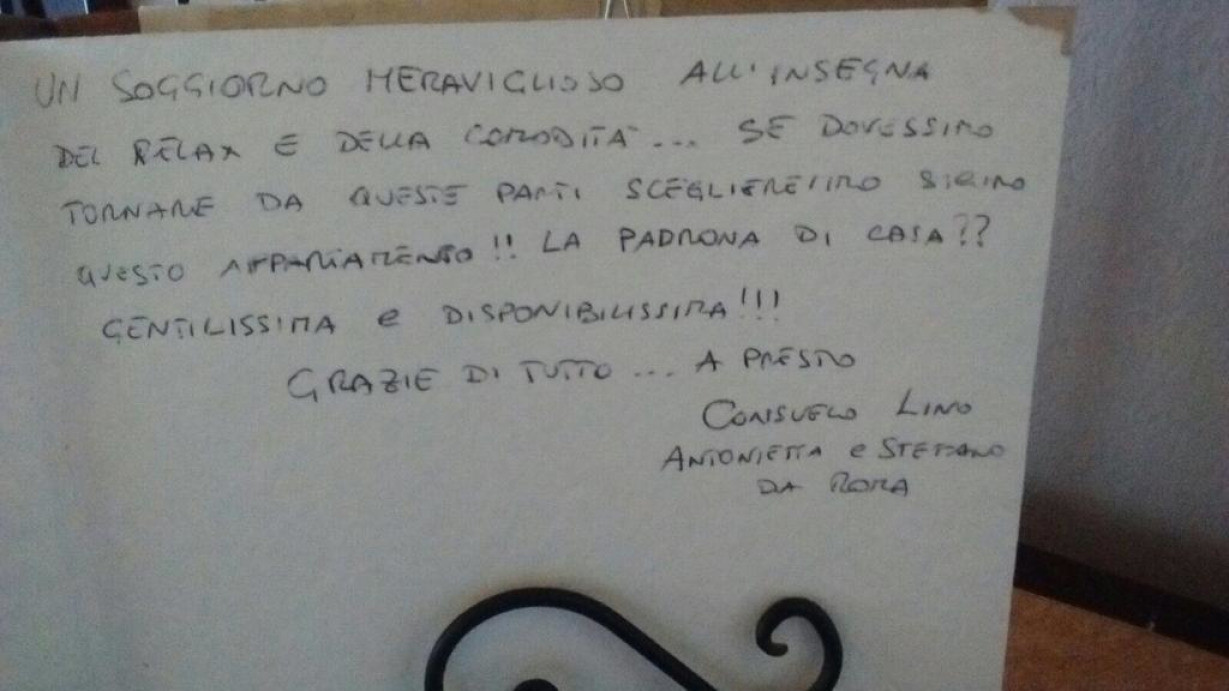 UN SOGGIORNO MERAVIGLIOSO ALL'INSEGNA
DEL RELAX E DELLA COMODITÀ... SE DOVESSIMO
TORNARE DA QUESTE PARTI SCEGLIEREMMO
QUESTO APPARTAMENTO!! LA PADRONA DI CASA??
GENTILISSIMA e DISPONIBILISSIMA!!!
GRAZIE DI TUTTO... A PRESTO
CONSUELO LINO
ANTONIETTA e STEFANO
DA ROMA